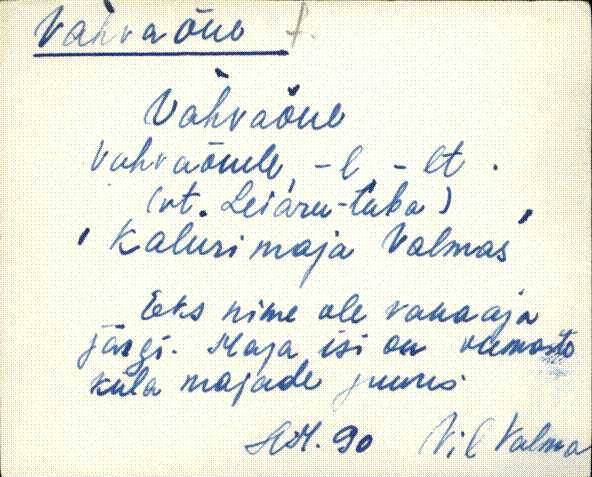 Vahvaõue f.
Vahvaõue
Vahvaõuele, -l, -lt.
(vt. Leiaru-tuba)
'Kaluri maja Valmas'
Eks nime ole vanaaja
järgi. Maja isi on
küla majade juures
90 Vil Valma